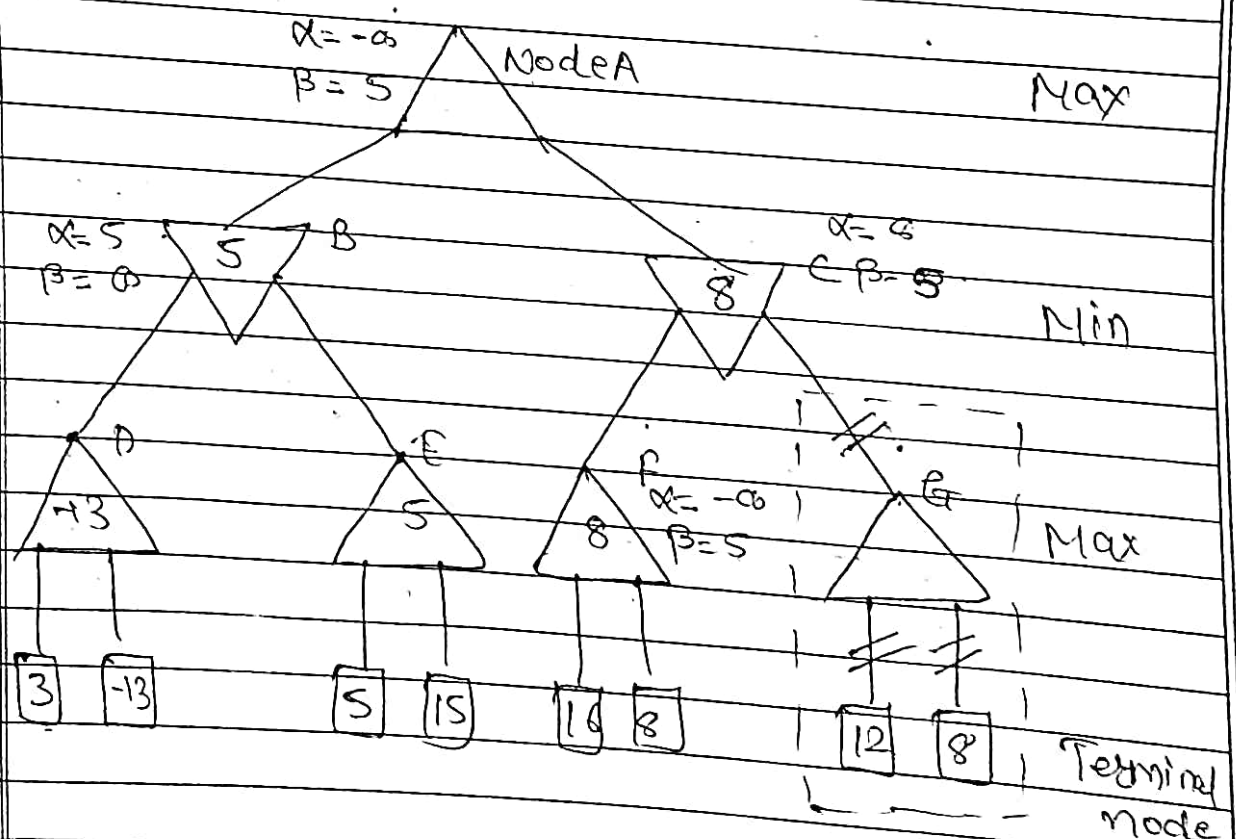 α=-∞
β=5
NodeA
Max
α=5
β=∞
5
B
α=∞
C β=5
8
Min
D
E
F
G
α=-∞
β=5
+3
5
8
Max
3
-13
5
15
16
8
12
8
Terminal
node